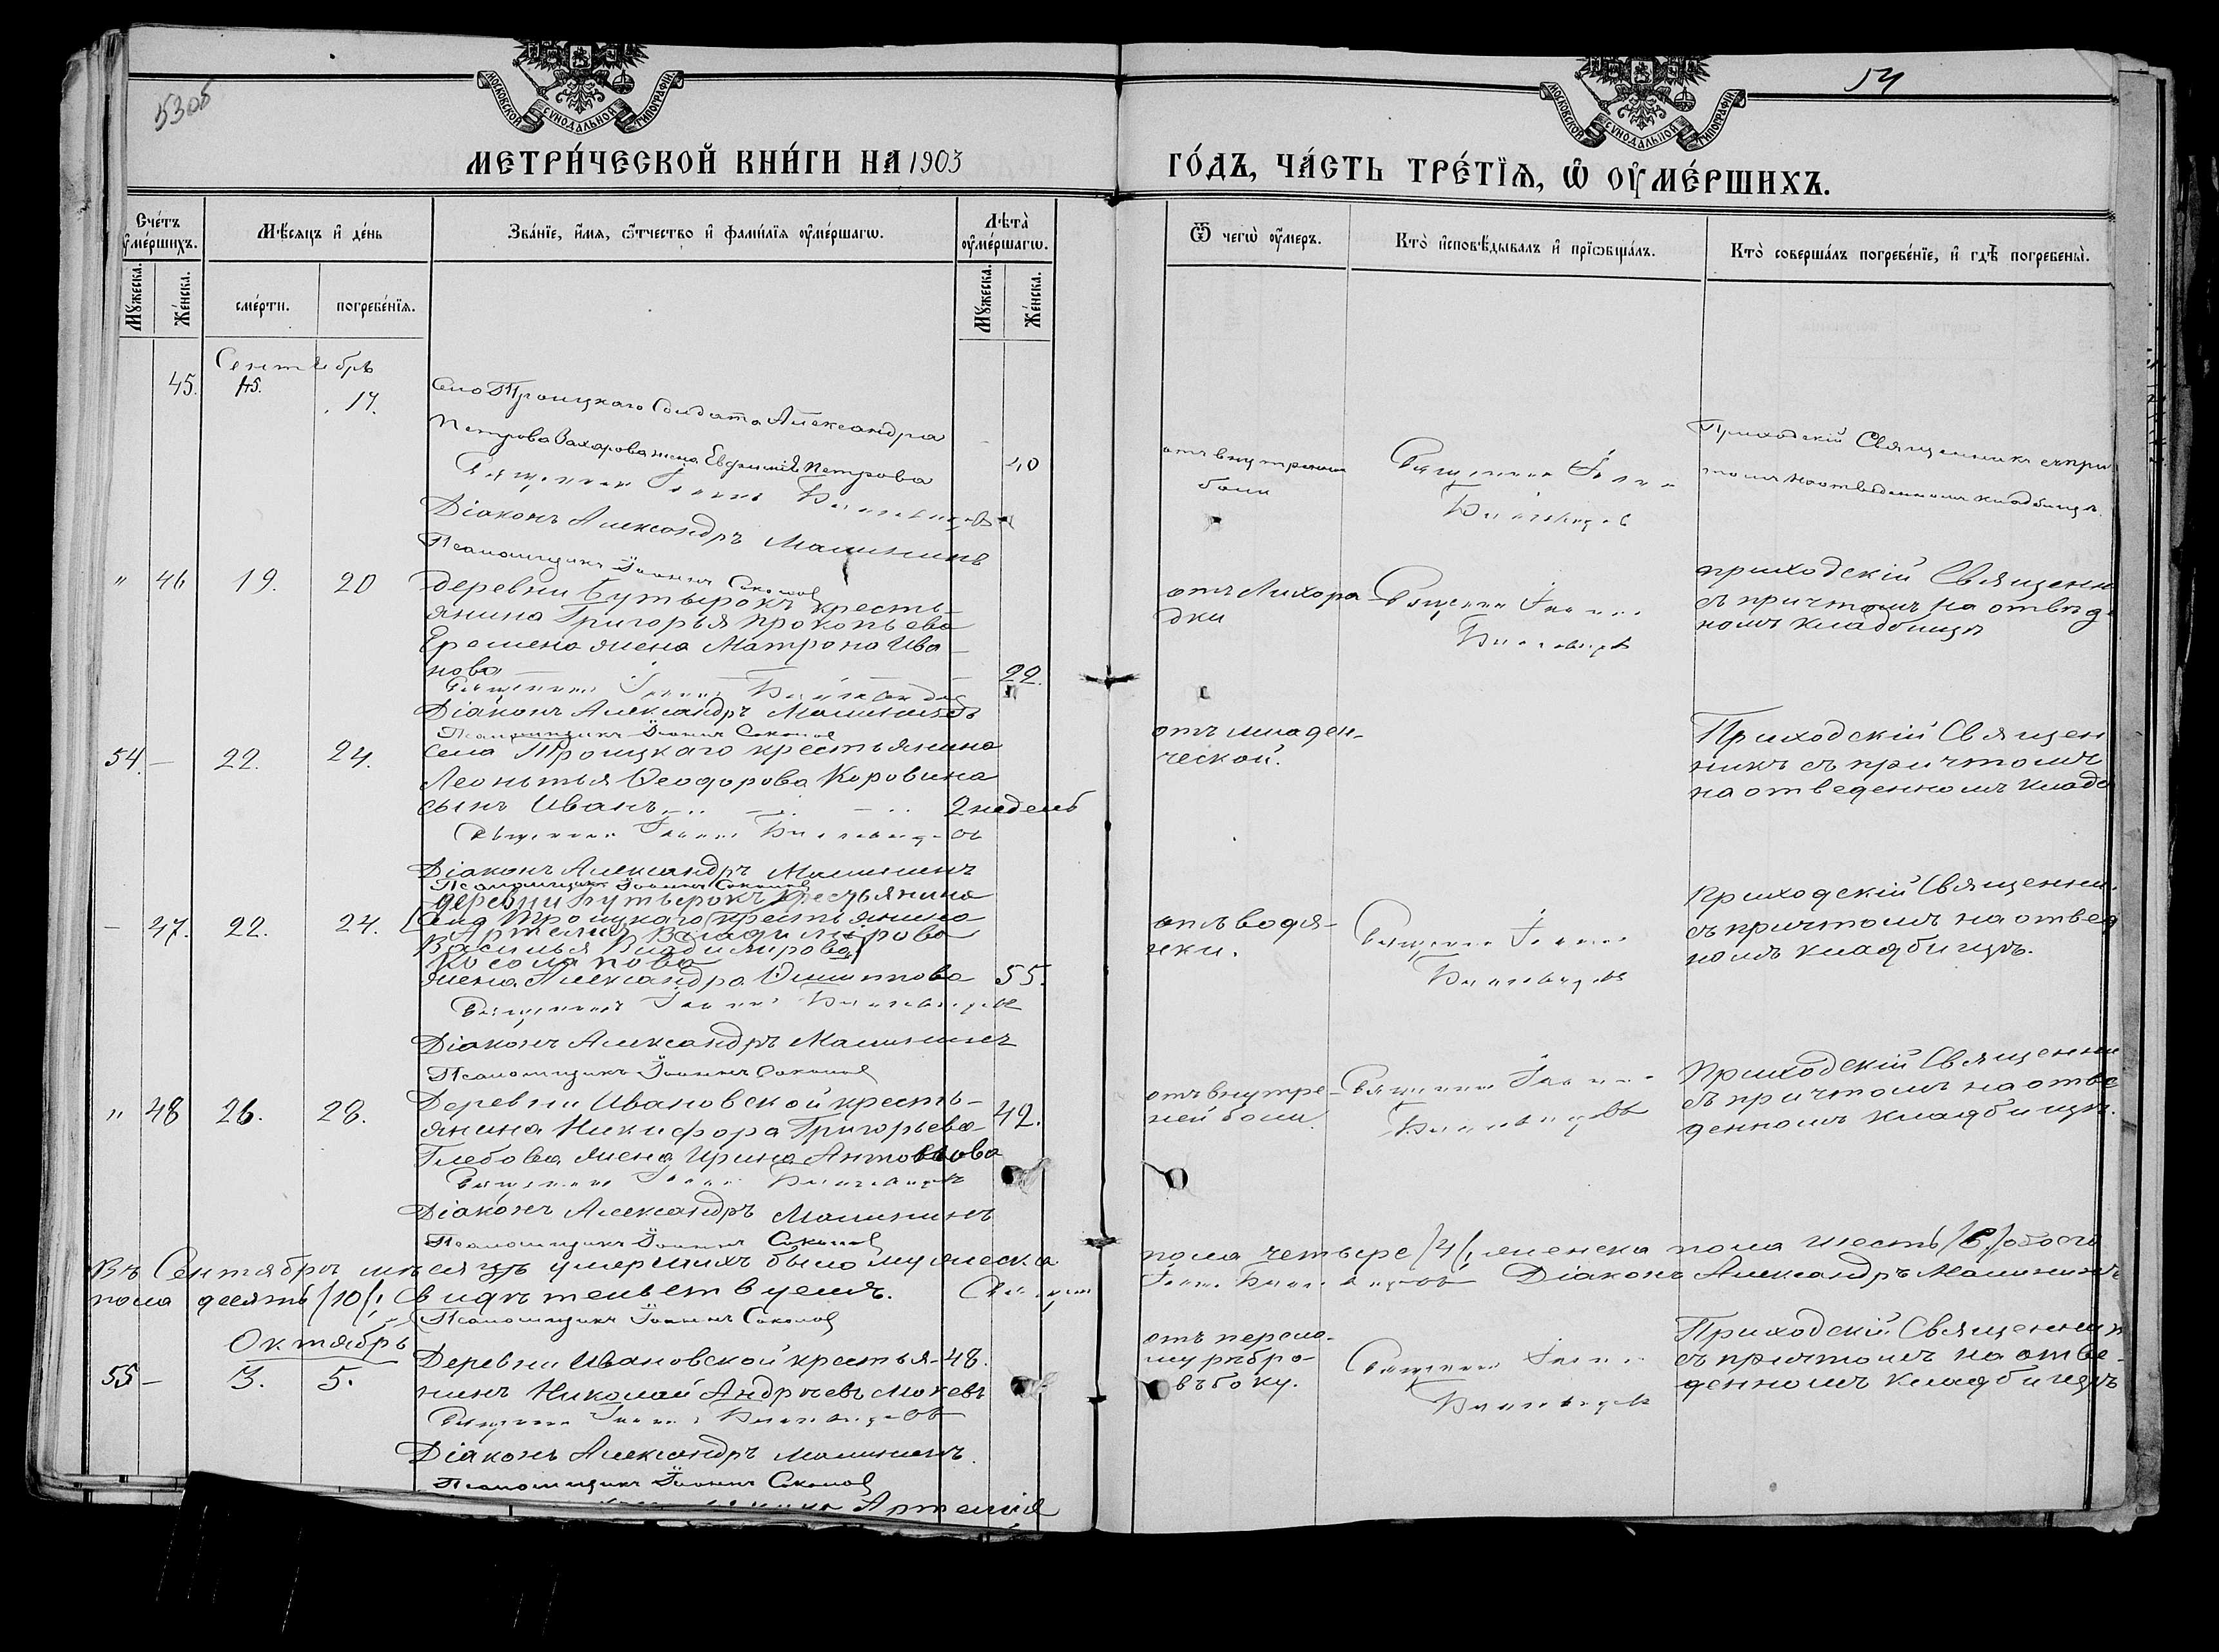 53об
54
МОСКОВСКОЙ СѴНОДАЛЬНОЙ ТИПОГРАФІИ
МОСКОВСКОЙ СѴНОДАЛЬНОЙ ТИПОГРАФІИ
МЕТРИ́ЧЕСКОЙ КНИ́ГИ НА 1903
ГО́ДЪ, ЧА́СТЬ ТРЕ́ТЇѦ, Ѡ ОУМЕ́РШИХЪ.
Сче́тъ ᲂумéршихъ.
Мѣ́сяцъ и де́нь
Зва́нїе, и́мѧ, ѻ҆́тчество и фами́лїѧ ᲂумéршагѡ.
Лѣта̀ ᲂумéршагѡ.
Ѿ чегѡ̀ ᲂу́меръ.
Кто̀ исповѣ́дывалъ и прїѡбща́лъ.
Кто̀ соверша́лъ погребе́нїе, и гдѣ̀ погребены̀.
Мꙋ́жеска.
Же́нска.
сме́рти.
погребе́нїѧ.
Мꙋ́жеска.
Же́нска.
Сентябрь
45. 15. 17.
Село Троицкаго Солдата Александра
Петрова Захарова жена Евфимія Петрова 40
Священник Іоанн
Діаконъ Александръ Малининъ
Псаломщикъ Іоаннъ Соколов
отъ внутренней
боли
Священник Іоанн
Приходскій Священникъ съ при
томъ на отведенномъ кладбищѣ.
" 46 19. 20
деревни Бутырокъ кресть-
янина Григорья Прокопьева
Еремена жена Матрона Ива-
нова 22.
Священник Іоанн
Діаконъ Александръ Малининъ
Псаломщикъ Іоаннъ Соколов
отъ Лихора-
дки
Священник Іоанн
приходскій Священн
съ причтомъ на отвед
номъ кладбищѣ
54. — 22. 24.
Села Троицкаго крестьянина
Леонтья Ѳеодорова Коровина
сынъ Иванъ 2 недель
Священник Іоанн
Діаконъ Александръ Малининъ
Псаломщикъ Іоаннъ Соколов
отъ младен-
ческой.
Приходскій Священ
никъ съ причтомъ
на отведенномъ кладб
— 47. 22. 24.
деревни Бутырокъ крестьянина
Села Троицкаго крестьянина
Артемия Владимірова
Василья Владимірова
жена Александра 55.
Священникъ Іоанн
Діаконъ Александръ Малининъ
Псаломщикъ Іоаннъ Соколов
отъ водя-
нки.
Священник Іоанн
Приходскій Священни
съ причтомъ на отвед
номъ кладбищѣ.
" 48 26. 28.
Деревни Ивановской кресть-
янина Никифора Григорьева 42.
Глебова жена Ирина Антонова
Священник Іоанн
Діаконъ Александръ Малининъ
Псаломщикъ Іоаннъ Соколов
отъ внутре-
ней боли.
Священник Іоанн
Приходскій Священни
съ причтомъ на отве
денномъ кладбищѣ.
Въ Сентябрѣ мѣсяцѣ умершихъ было мужеска
пола четыре /4/, женска пола шесть /6/, обоего
пола десять /10/. Свидѣтельствуемъ.
Діаконъ Александръ Малининъ
Псаломщикъ Іоаннъ Соколов
Октябрь
55 — 3. 5.
Деревни Ивановской крестья- 48.
нинъ Николай Андреевъ
Священник Іоанн
Діаконъ Александръ Малининъ.
Псаломщикъ Іоаннъ Соколов
отъ перело-
му рѣбро-
въ боку.
Священник Іоанн
Приходскій Священни
съ причтомъ на отве-
денномъ кладбищѣ
Артемія